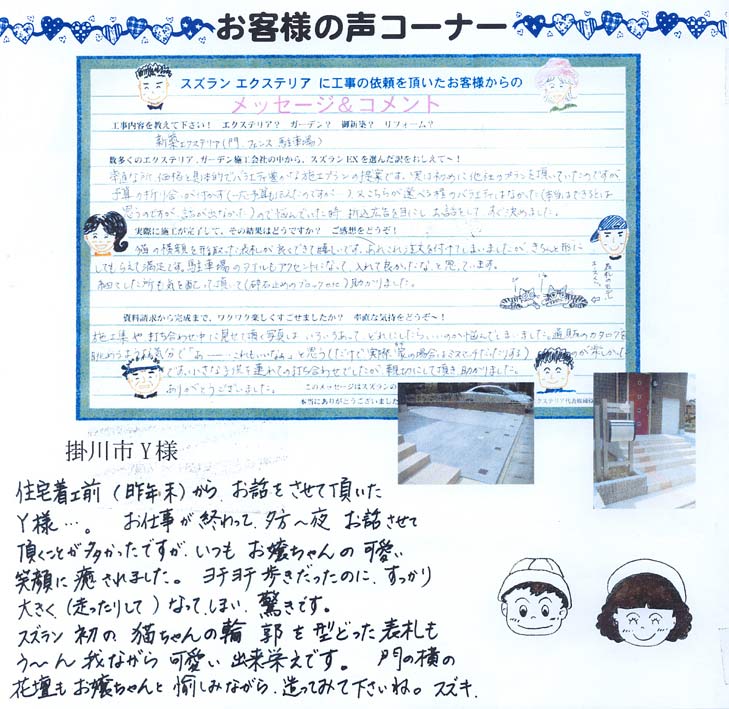 お客様の声コーナー
スズラン エクステリア に工事の依頼を頂いたお客様からの
メッセージ&コメント
工事内容を教えて下さい! エクステリア? ガーデン? 御新築? リフォーム?
新築エクステリア(門、フェンス 駐車場)
数多くのエクステリア、ガーデン施工会社の中から、スズランEXを選んだ訳をおしえて〜!
率直な所、価格と具体的でバラエティ豊かな施工プランの提案です。実は初めに他社のプランを頂いていたのですが
予算の折り合いが付かず 又こちらが選べる程のバラエティはなかった
思うのですが、話が出なかった)ので悩んでいた時 折込広告を目にし お話をして すぐ決めました。
実際に施工が完了して、その結果はどうですか? ご感想をどうぞ!
猫の横顔を形取った表札が良くできて嬉しいです。あれこれ注文を付けてしまいましたが、きちんと形に
してもらえて満足です。駐車場のタイルもアクセントになって、入れて良かったな、と思っています。
した所も気を配って頂いて(砕石止めのブロックetc)助かりました。
資料請求から完成まで、ワクワク楽しくすごせましたか? 率直な気持をどうぞ〜!
施工集や打ち合わせ中に見せて頂く写真は いろいろあって どれにしたらいいのか悩んでしまいました。通販のカタログを
眺めるような気分で「あー…これもいいなぁ」と思う
小さな子供を連れての打ち合わせでしたが、親切にして頂き助かりました。
ありがとうございました。
このメッセージはスズランの
本当にありがとうございました
掛川市Y様
住宅着工前(昨年末)から、お話をさせて頂いた
Y様…。 お仕事が終わって、夕方〜夜 お話させて
頂くことが多かったですが、いつも お嬢ちゃんの可愛い
笑顔に癒されました。ヨチヨチ歩きだったのに、すっかり
大きく(走ったりして)なってしまい、驚きです。
スズラン 初の 猫ちゃんの輪郭を型どった表札も
う〜ん 我ながら 可愛い 出来栄えです。 門の横の
花壇も お嬢ちゃんと 愉しみながら、造ってみて下さいね。スズキ.